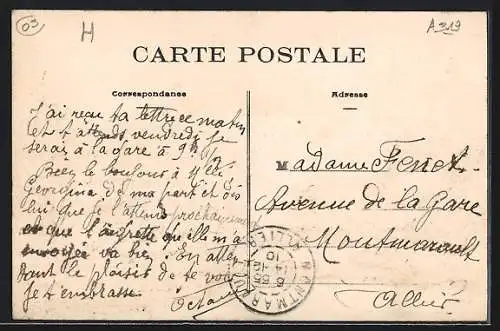 03
H
A 319
CARTE POSTALE
Correspondance
Adresse
J'ai reçu ta lettre ce matin
et t'attends vendredi je
serai à la gare à 9h 1/2
Bien le bonjour à Mlle
Georgina de ma part et dis
lui que je l'attends prochainement
et que l'aigrette qu'elle m'a
envoyée va bien. En atten
dant le plaisir de te voir
Je t'embrasse.
Octave
Madame Feret
Avenue de la Gare
Montmarault
Allier
MONTMARAULT
ALLIER